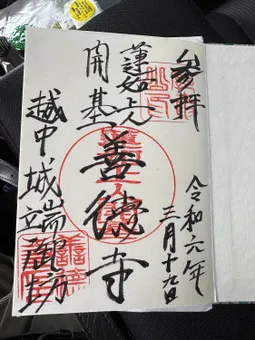 参拝
令和六年
三月十九日
蓮如上人
開基
善徳寺
越中城端御坊